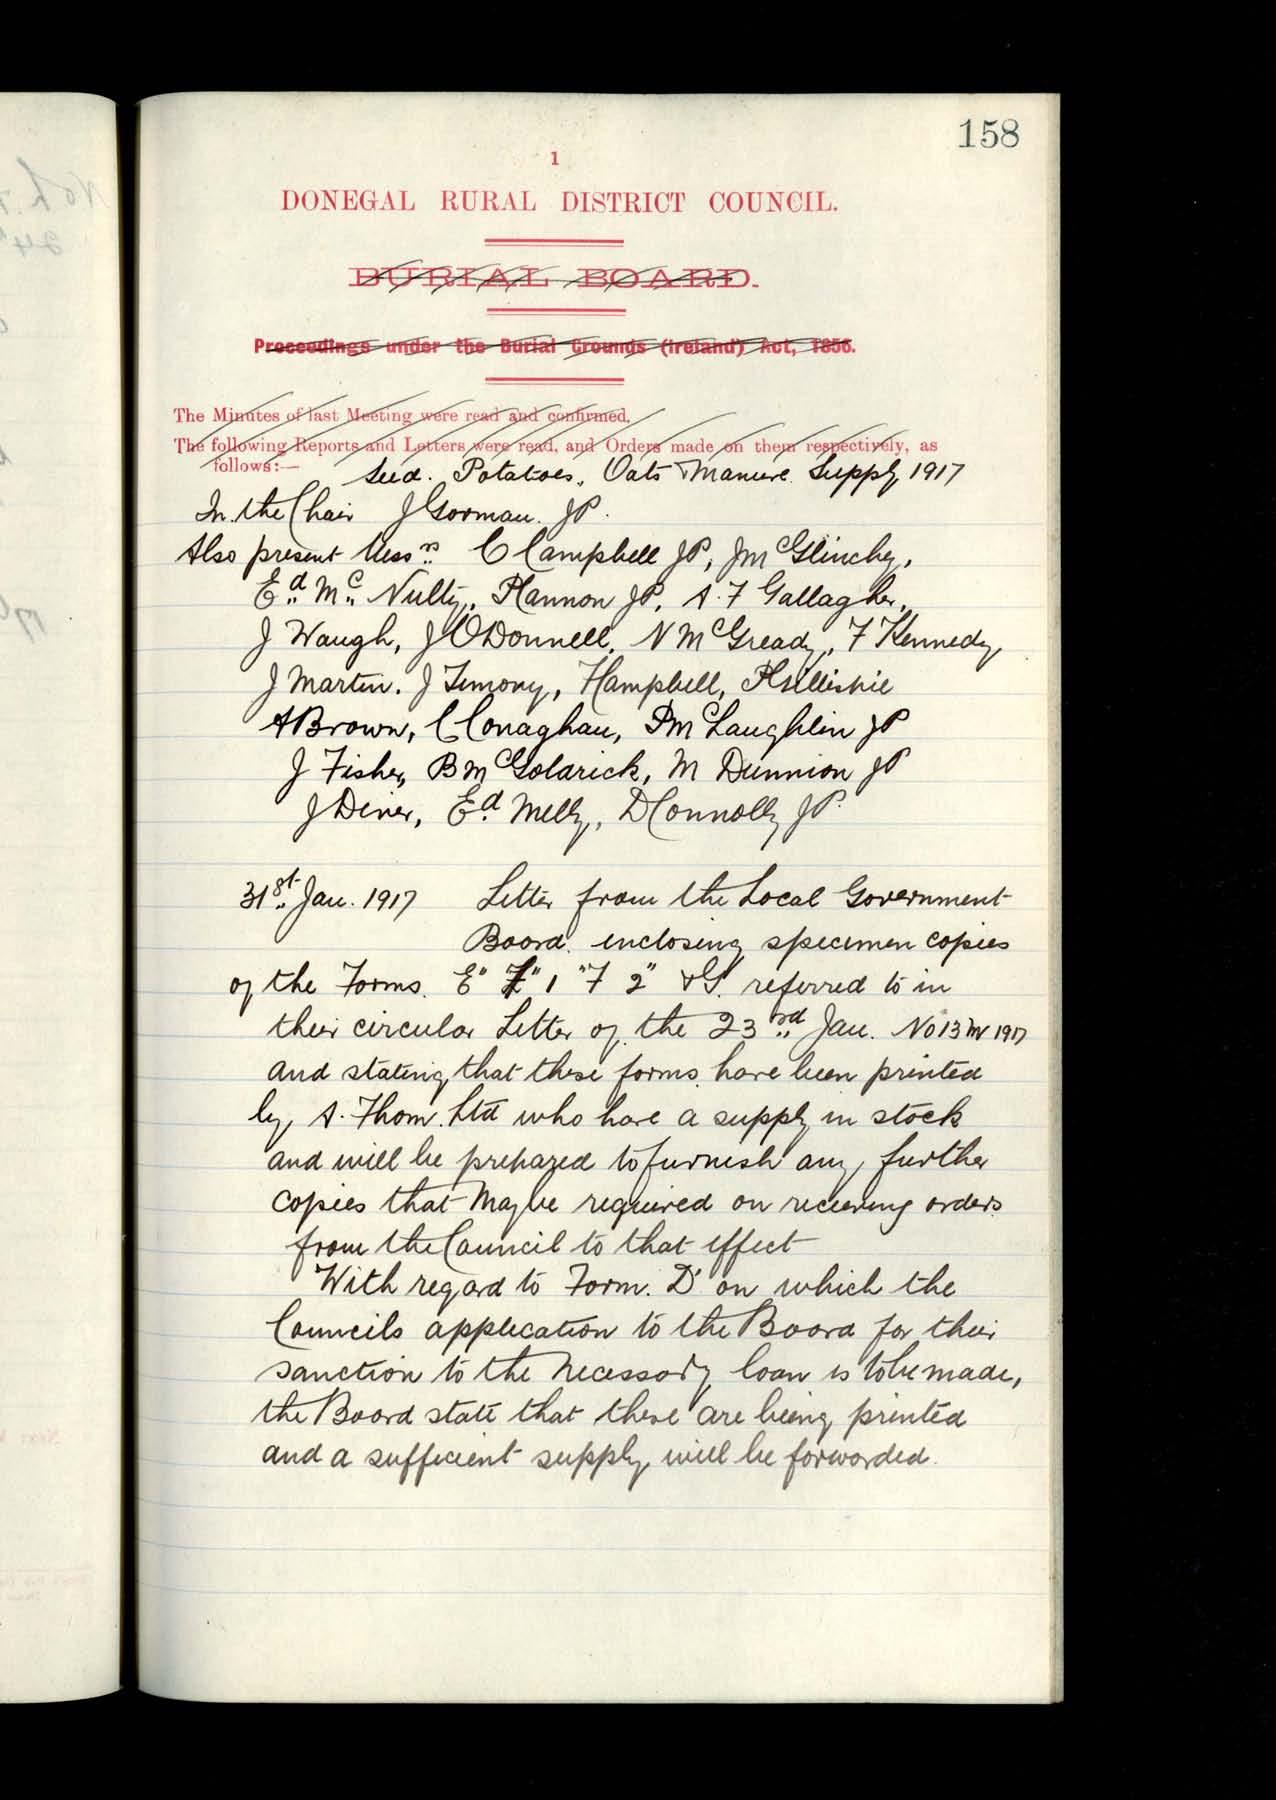 158
1
DONEGAL RURAL DISTRICT COUNCIL.
BURIAL BOARD.
Proceedings under the Burial Grounds (Ireland) Act, 1856.
The Minutes of last Meeting were read and confirmed.
The following Reports and Letters were read, and Orders made on them respectively, as
follows:—
Seed. Potatoes, Oats & Manure Supply 1917
In the Chair J Gorman. JP.
Also present Messrs C Campbell JP, J McGlinchy,
Ed Mc Nulty, P Hannon JP, A. F Gallagher,
J Waugh, J O'Donnell, N McGready, F Kennedy
J Martin. J Timony, H Campbell, P Killispie
A Brown, C Conaghan, P McLaughlin JP
J Fisher, B McGoldrick, M Dunnion JP
J Diver, Ed Melly, D Connolly JP.
31st Jan. 1917 Letter from the Local Government
Board enclosing specimen copies
of the Forms. E" F" 1 "F 2" & G. referred to in
their circular Letter of the 23rd Jan. No 13 M 1917
and stating that these forms have been printed
by A. Thom. Ltd who have a supply in stock
and will be prepared to furnish any further
copies that may be required on recieving orders
from the Council to that effect
With regard to Form. D' on which the
Councils application to the Board for their
sanction to the necessary loan is to be made,
the Board state that these are being printed
and a sufficient supply will be forwarded.